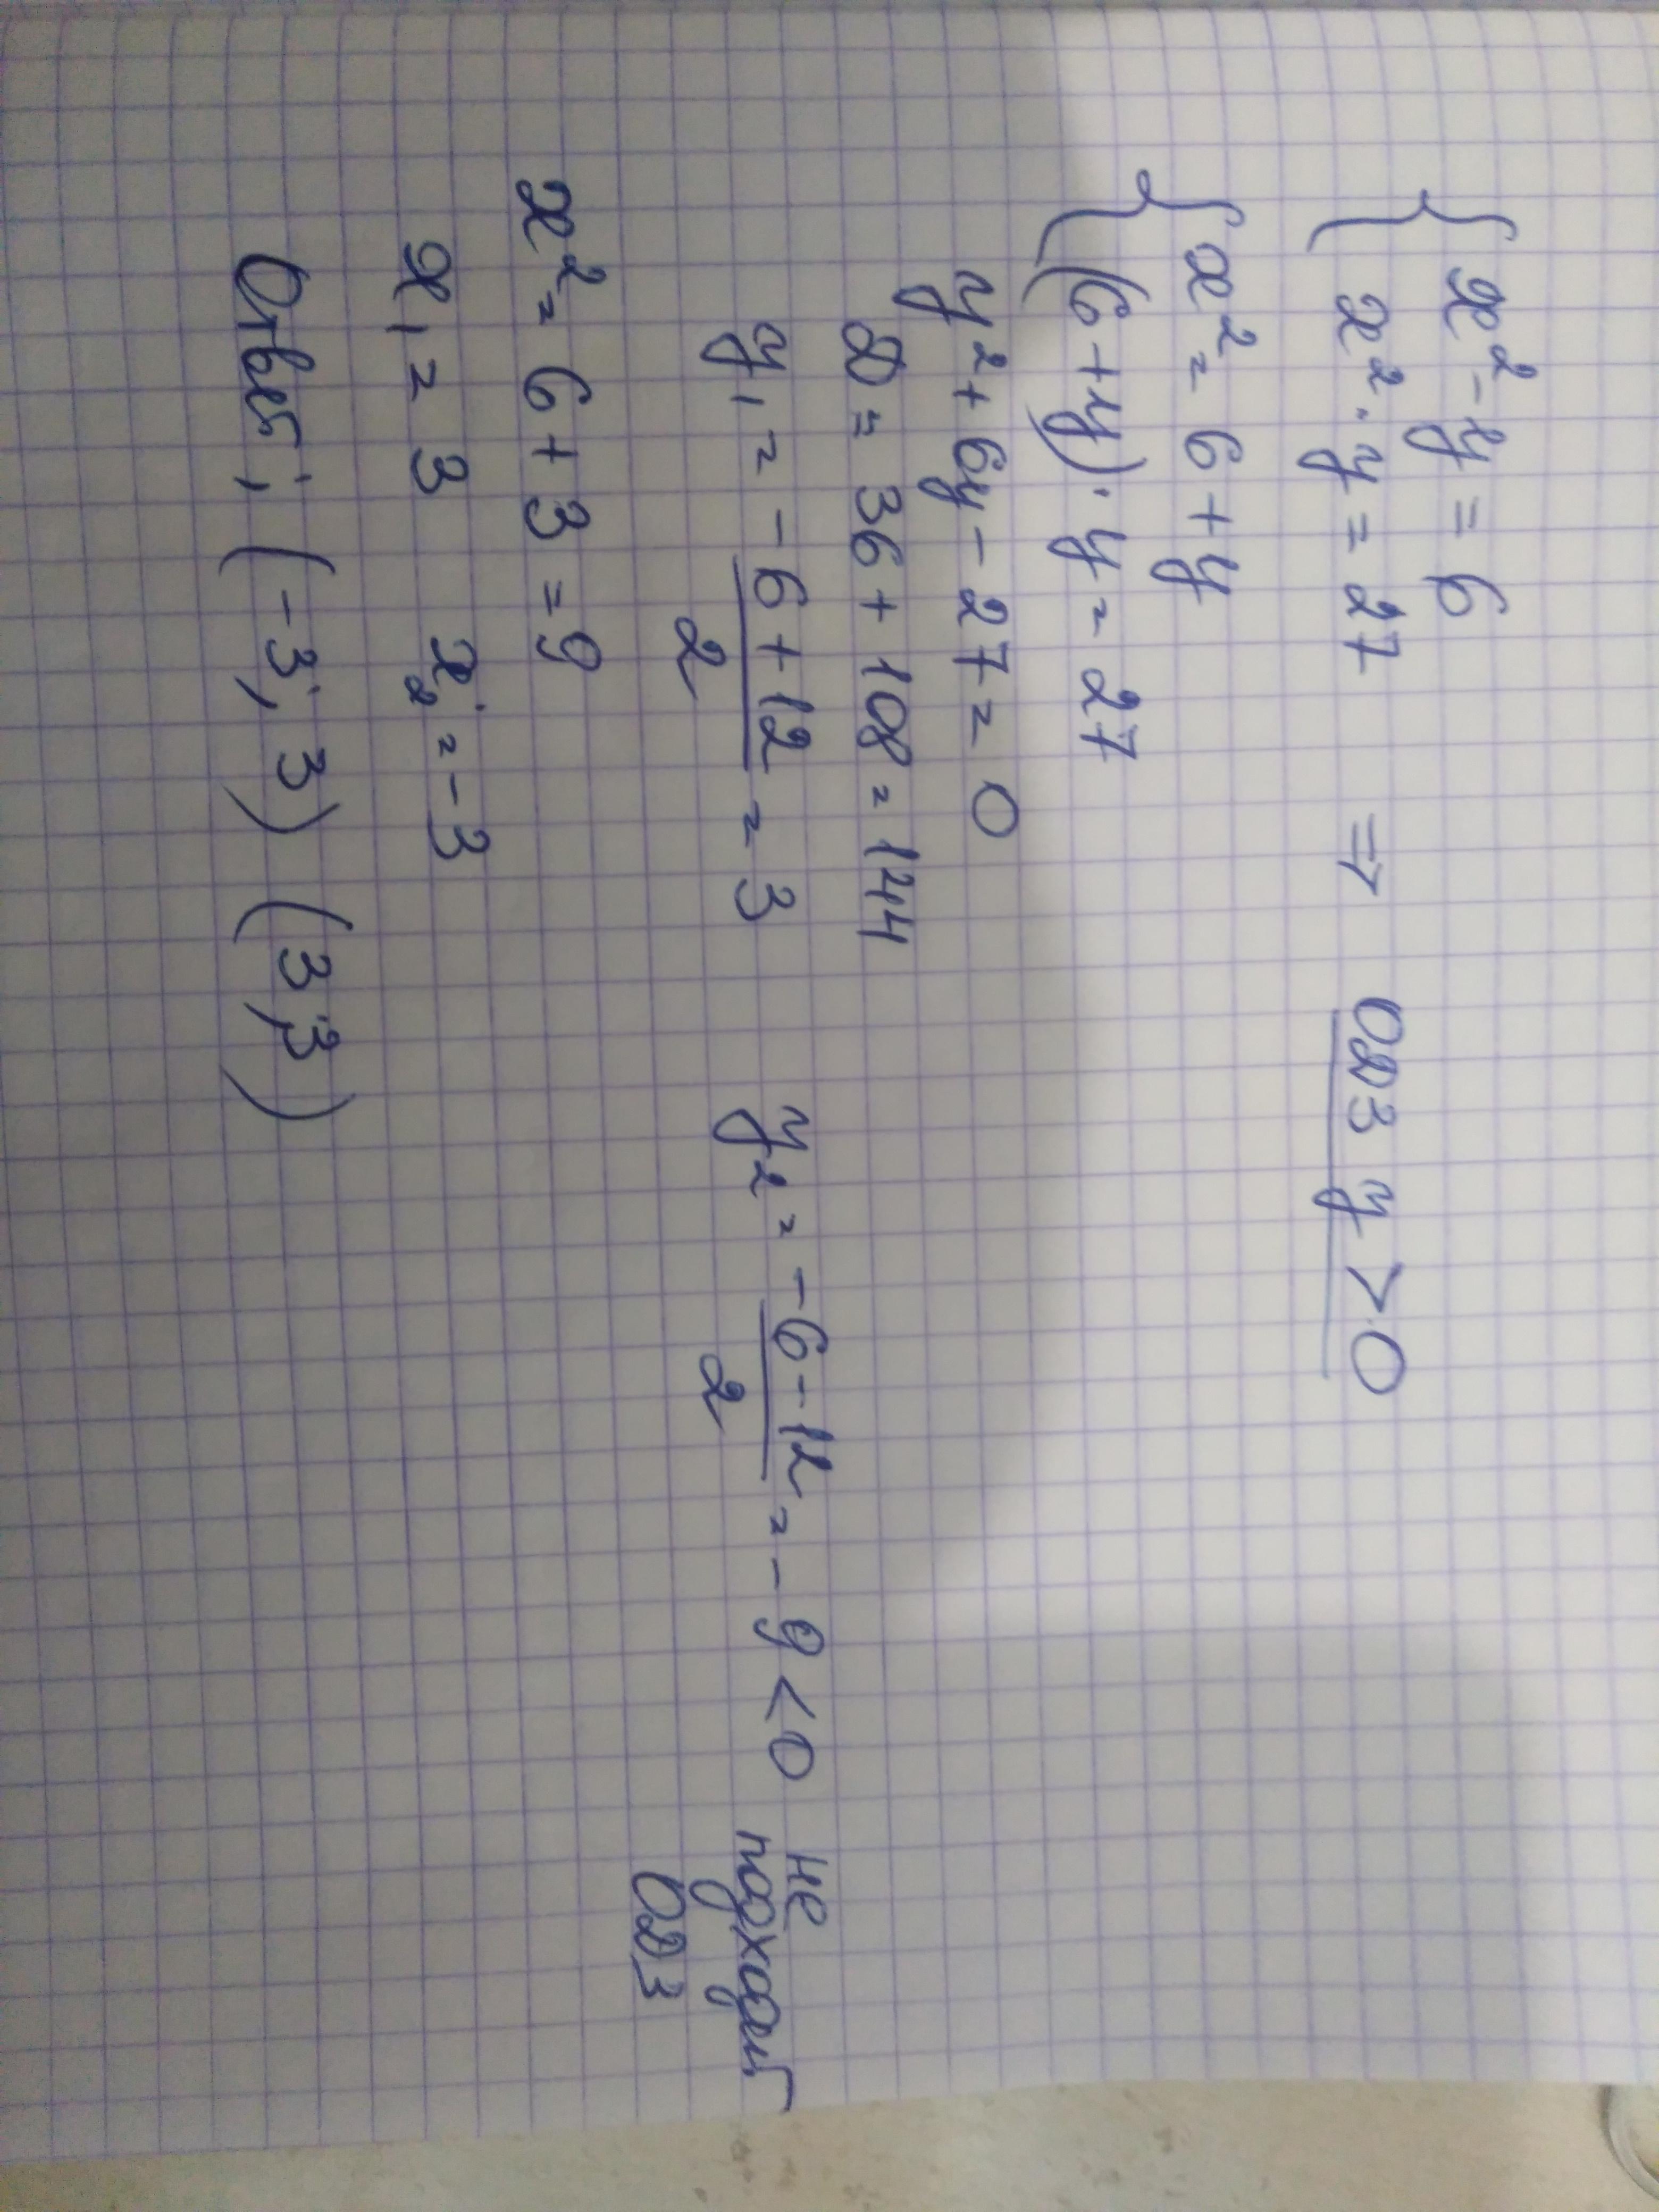 x² - y = 6
x² · y = 27 => ОДЗ y > 0
x² = 6 + y
(6 + y) · y = 27
y² + 6y - 27 = 0
D = 36 + 108 = 144
y₁ = (-6 + 12)/2 = 3 y₂ = (-6 - 12)/2 = -9 < 0 не подходит ОДЗ
x² = 6 + 3 = 9
x₁ = 3 x₂ = -3
Ответ: (-3; 3) (3; 3)